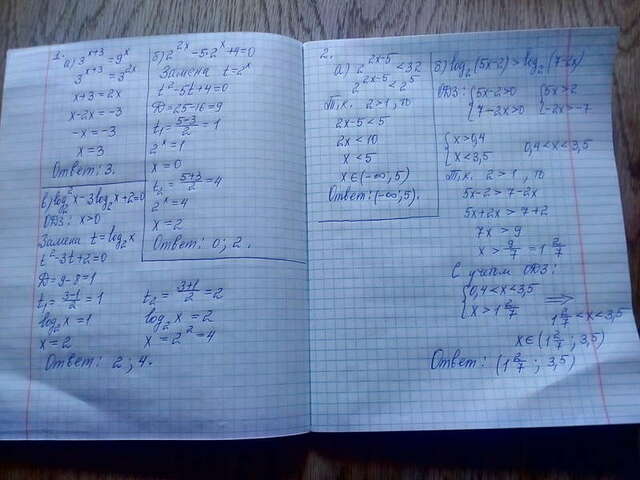 1.
а) 3^{x+3} = 9^x
3^{x+3} = 3^{2x}
x+3 = 2x
x-2x = -3
-x = -3
x = 3
Ответ: 3.
б) 2^{2x} - 5·2^x + 4 = 0
Замена t = 2^x
t² - 5t + 4 = 0
Д = 25 - 16 = 9
t₁ = (5-3)/2 = 1
2^x = 1
x = 0
t₂ = (5+3)/2 = 4
2^x = 4
x = 2
Ответ: 0; 2.
в) log₂²x - 3log₂x + 2 = 0
ОДЗ: x > 0
Замена t = log₂x
t² - 3t + 2 = 0
Д = 9 - 8 = 1
t₁ = (3-1)/2 = 1
log₂x = 1
x = 2
t₂ = (3+1)/2 = 2
log₂x = 2
x = 2² = 4
Ответ: 2; 4.
2.
а) 2^{2x-5} < 32
2^{2x-5} < 2^5
Т.к. 2 > 1, то
2x-5 < 5
2x < 10
x < 5
x ∈ (-∞; 5)
Ответ: (-∞; 5).
б) log₂(5x-2) > log₂(7-2x)
ОДЗ: { 5x-2>0 { 5x>2
7-2x>0 -2x>-7
{ x > 0,4
x < 3,5 0,4 < x < 3,5
Т.к. 2 > 1, то
5x-2 > 7-2x
5x+2x > 7+2
7x > 9
x > 9/7 = 1 2/7
С учётом ОДЗ:
{ 0,4 < x < 3,5
x > 1 2/7 ⟹
1 2/7 < x < 3,5
x ∈ (1 2/7; 3,5)
Ответ: (1 2/7; 3,5)